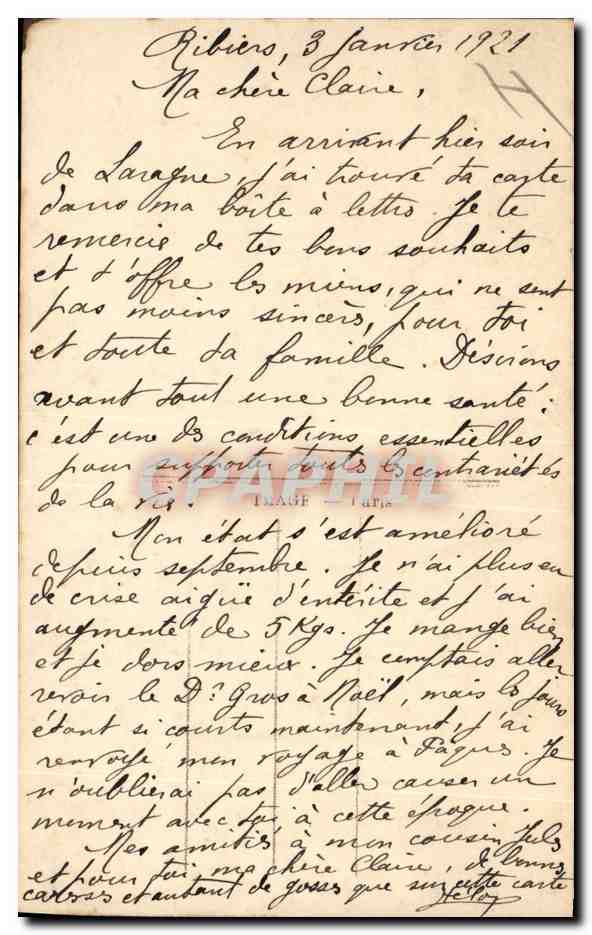 Ribiers, 3 Janvier 1921
Ma chère Claire,
H
En arrivant hier soir
de Laragne, j'ai trouvé ta carte
dans ma boîte à lettrs. Je te
remercie de tes bons souhaits
et t'offre les miens, qui ne sont
pas moins sincères, pour toi
et toute ta famille. Désirons
avant tout une bonne santé :
c'est une des conditions essentielles
pour supporter toutes les contrariétés
de la vie.
CPAPHIL
IMAGE - Paris
Mon état s'est amélioré
depuis septembre. Je n'ai plus eu
de crise aigüe d'entérite et j'ai
augmenté de 5 Kgs. Je mange bien
et je dors mieux. Je comptais aller
revoir le Dr. Gros à Noël, mais les jours
étant si courts maintenant, j'ai
renvoyé mon voyage à Pâques. Je
n'oublierai pas d'aller causer un
moment avec toi à cette époque.
Mes amitiés à mon cousin Jules
et pour toi, ma chère Claire, de bonnes
caresses et autant de gosses que sur cette carte